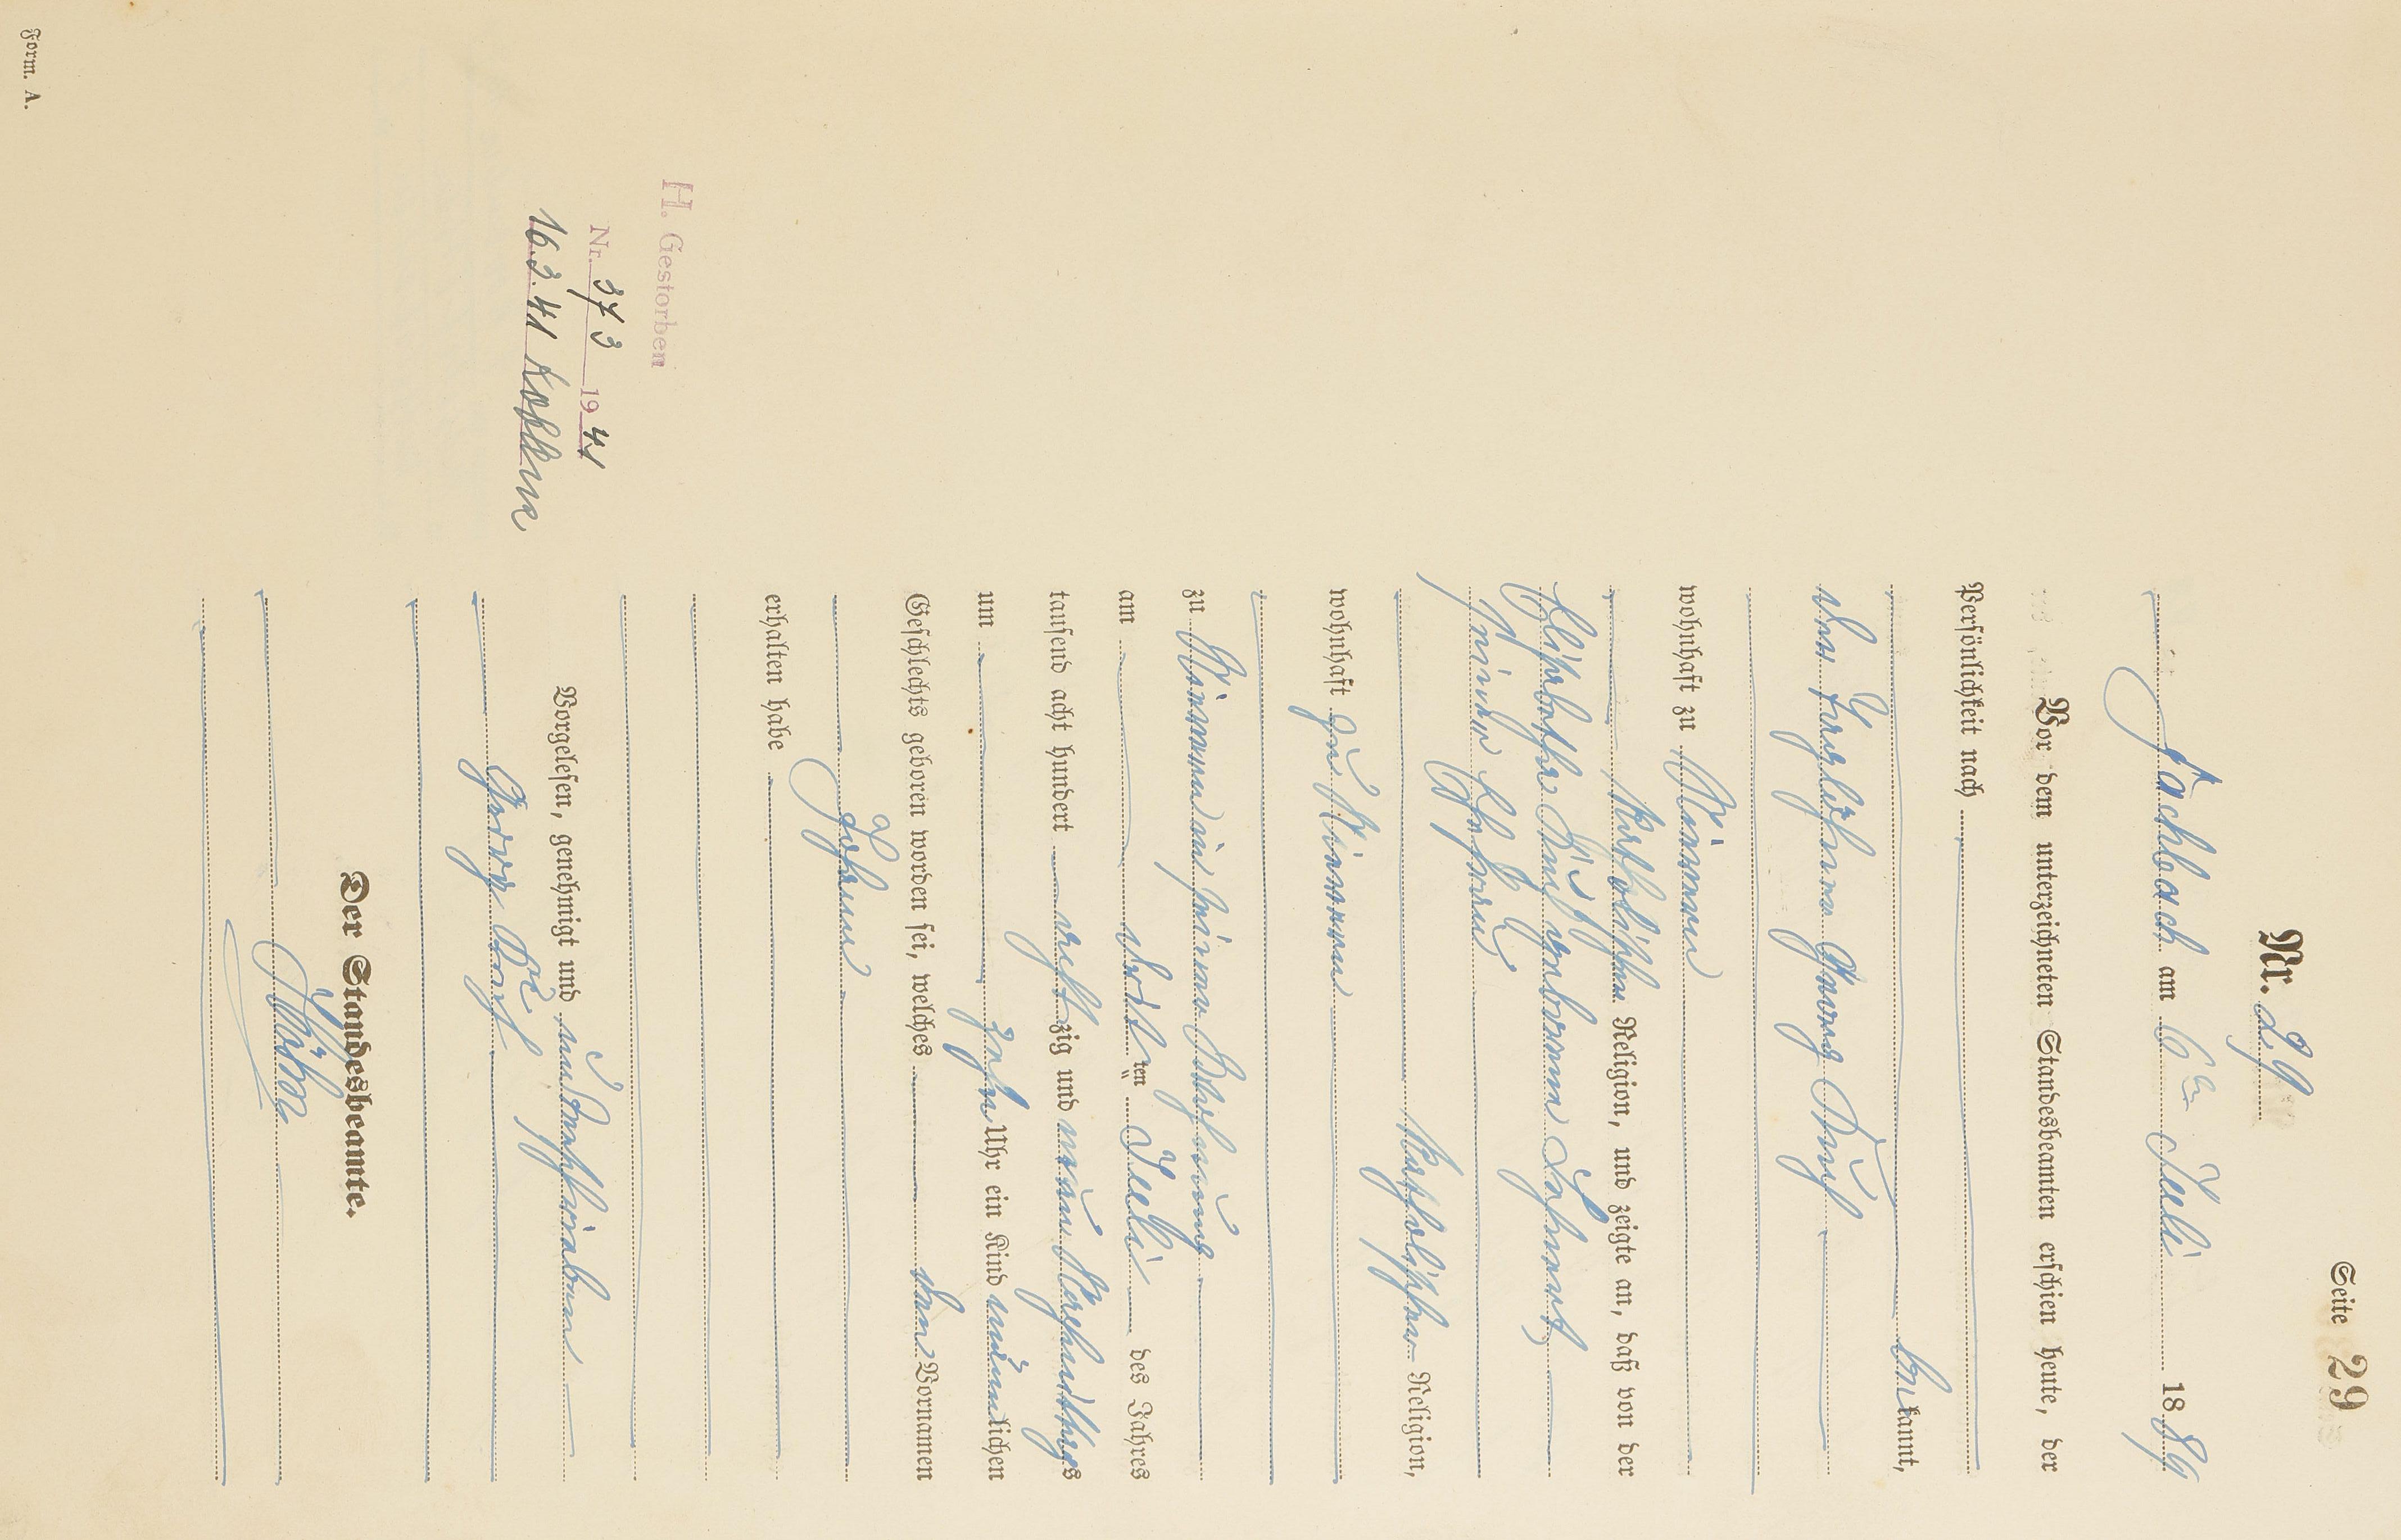 Seite 29
Nr. 29
Fachbach am 6ten Juli 1889
Vor dem unterzeichneten Standesbeamten erschien heute, der
Persönlichkeit nach
bekannt,
der Taglöhner Georg
wohnhaft zu Nievern
katholischer Religion, und zeigte an, daß von der
Elisabetha geborenen
seiner Ehefrau
katholischer Religion,
wohnhaft zu Nievern
zu Nievern in seiner Wohnung
am dritten Juli des Jahres
tausend acht hundert achtzig und neun Nachmittags
um zehn Uhr ein Kind männlichen
Geschlechts geboren worden sei, welches den Vornamen
Johann
erhalten habe
Vorgelesen, genehmigt und unterschrieben
Georg
Der Standesbeamte.
H. Gestorben
Nr. 373 1941
16.3.41 Koblenz
Form. A.